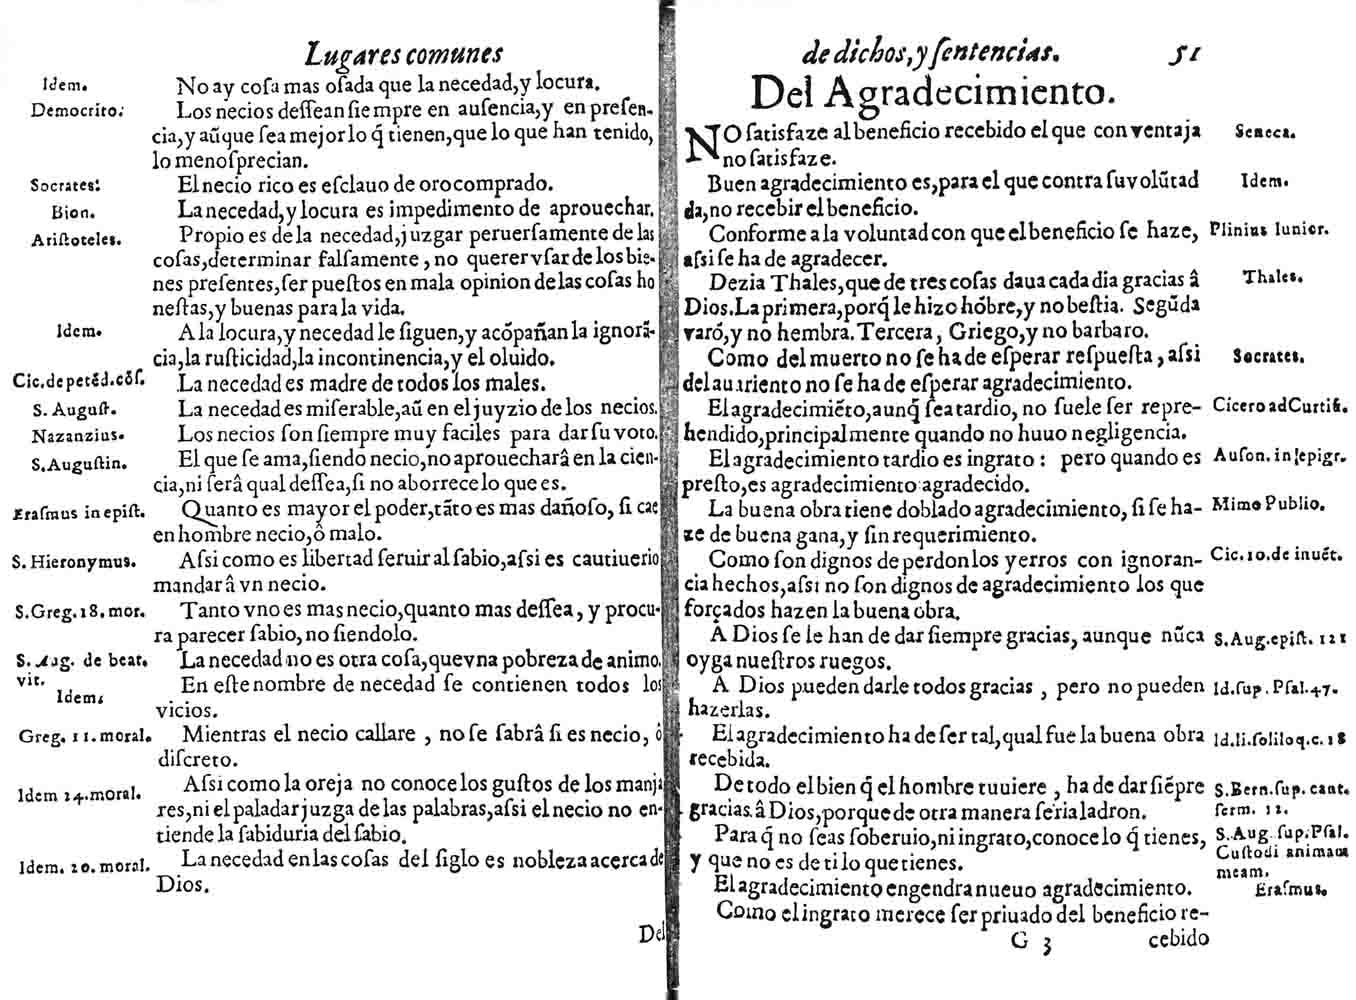 Lugares comunes
Idem. No ay coſa mas oſada que la necedad, y locura.
Democrito: Los necios deſſean ſiempre en auſencia, y en preſen-
cia, y aũque ſea mejor lo q̃ tienen, que lo que han tenido,
lo menoſprecian.
Socrates: El necio rico es eſclauo de oro comprado.
Bion. La necedad, y locura es impedimento de aprouechar.
Ariſtoteles. Propio es de la necedad, juzgar peruerſamente de las
coſas, determinar falſamente, no querer vſar de los bie-
nes preſentes, ſer pueſtos en mala opinion de las coſas ho
neſtas, y buenas para la vida.
Idem. A la locura, y necedad le ſiguen, y acópañan la ignorã-
cia, la ruſticidad, la incontinencia, y el oluido.
Cic. de petēd. cōſ. La necedad es madre de todos los males.
S. Auguſt. La necedad es miſerable, aũ en el juyzio de los necios.
Nazanzius. Los necios ſon ſiempre muy faciles para dar ſu voto.
S. Auguſtin. El que ſe ama, ſiendo necio, no aprouecharâ en la cien-
cia, ni ſerâ qual deſſea, ſi no aborrece lo que es.
Eraſmus in epiſt. Quanto es mayor el poder, tãto es mas dañoſo, ſi cae
en hombre necio, ô malo.
S. Hieronymus. Aſsi como es libertad ſeruir al ſabio, aſsi es cautiuerio
mandar â vn necio.
S. Greg. 18. mor. Tanto vno es mas necio, quanto mas deſſea, y procu-
ra parecer ſabio, no ſiendolo.
S. Aug. de beat. La necedad no es otra coſa, que vna pobreza de animo.
vit.
Idem. En eſte nombre de necedad ſe contienen todos los
vicios.
Greg. 11. moral. Mientras el necio callare, no ſe ſabrâ ſi es necio, ô
diſcreto.
Idem 24. moral. Aſsi como la oreja no conoce los guſtos de los manja
res, ni el paladar juzga de las palabras, aſsi el necio no en-
tiende la ſabiduria del ſabio.
Idem. 20. moral. La necedad en las coſas del ſiglo es nobleza acerca de
Dios.
Del
de dichos, y ſentencias. 51
Del Agradecimiento.
NO ſatisfaze al beneficio recebido el que con ventaja Seneca.
no ſatisfaze.
Buen agradecimiento es, para el que contra ſu volũtad Idem.
da, no recebir el beneficio.
Conforme a la voluntad con que el beneficio ſe haze, Plinius Iunior.
aſsi ſe ha de agradecer.
Dezia Thales, que de tres coſas daua cada dia gracias â Thales.
Dios. La primera, porq̃ le hizo hóbre, y no beſtia. Segũda
varó, y no hembra. Tercera, Griego, y no barbaro.
Como del muerto no ſe ha de eſperar reſpueſta, aſsi Socrates.
del auariento no ſe ha de eſperar agradecimiento.
El agradecimiéto, aunq̃ ſea tardio, no ſuele ſer repre- Cicero ad Curtiũ.
hendido, principalmente quando no huuo negligencia.
El agradecimiento tardio es ingrato: pero quando es Auſon. in epigr.
preſto, es agradecimiento agradecido.
La buena obra tiene doblado agradecimiento, ſi ſe ha- Mimo Publio.
ze de buena gana, y ſin requerimiento.
Como ſon dignos de perdon los yerros con ignoran- Cic. 10. de inuēt.
cia hechos, aſsi no ſon dignos de agradecimiento los que
forçados hazen la buena obra.
A Dios ſe le han de dar ſiempre gracias, aunque nũca S. Aug. epiſt. 121
oyga nueſtros ruegos.
A Dios pueden darle todos gracias, pero no pueden Id. ſup. Pſal. 47.
hazerlas.
El agradecimiento ha de ſer tal, qual fue la buena obra Id. li. ſoliloq. c. 18
recebida.
De todo el bien q̃ el hombre tuuiere, ha de dar ſiépre S. Bern. ſup. cant.
gracias â Dios, porque de otra manera ſeria ladron. ſerm. 12.
Para q̃ no ſeas ſoberuio, ni ingrato, conoce lo q̃ tienes, S. Aug. ſup. Pſal.
y que no es de ti lo que tienes. Cuſtodi animam
meam.
El agradecimiento engendra nueuo agradecimiento. Eraſmus.
Como el ingrato merece ſer priuado del beneficio re-
G 3 cebido